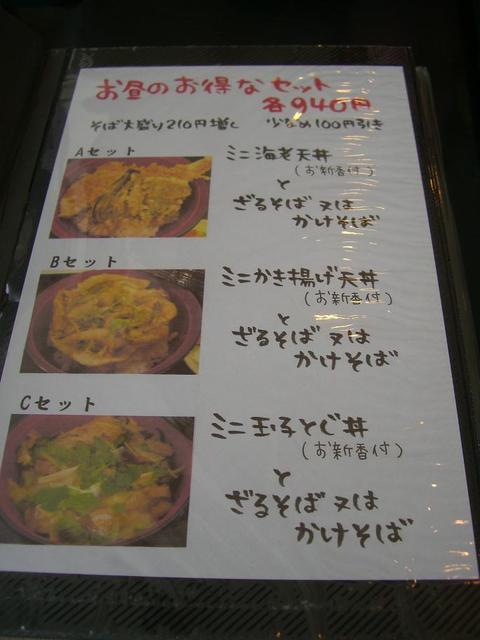 お昼のお得なセット
各940円
そば大盛り210円増し 少なめ100円引き
Aセット
ミニ海老天丼
(お新香付)
と
ざるそば又は
かけそば
Bセット
ミニかき揚げ天丼
(お新香付)
と
ざるそば又は
かけそば
Cセット
ミニ玉子とじ丼
(お新香付)
と
ざるそば又は
かけそば